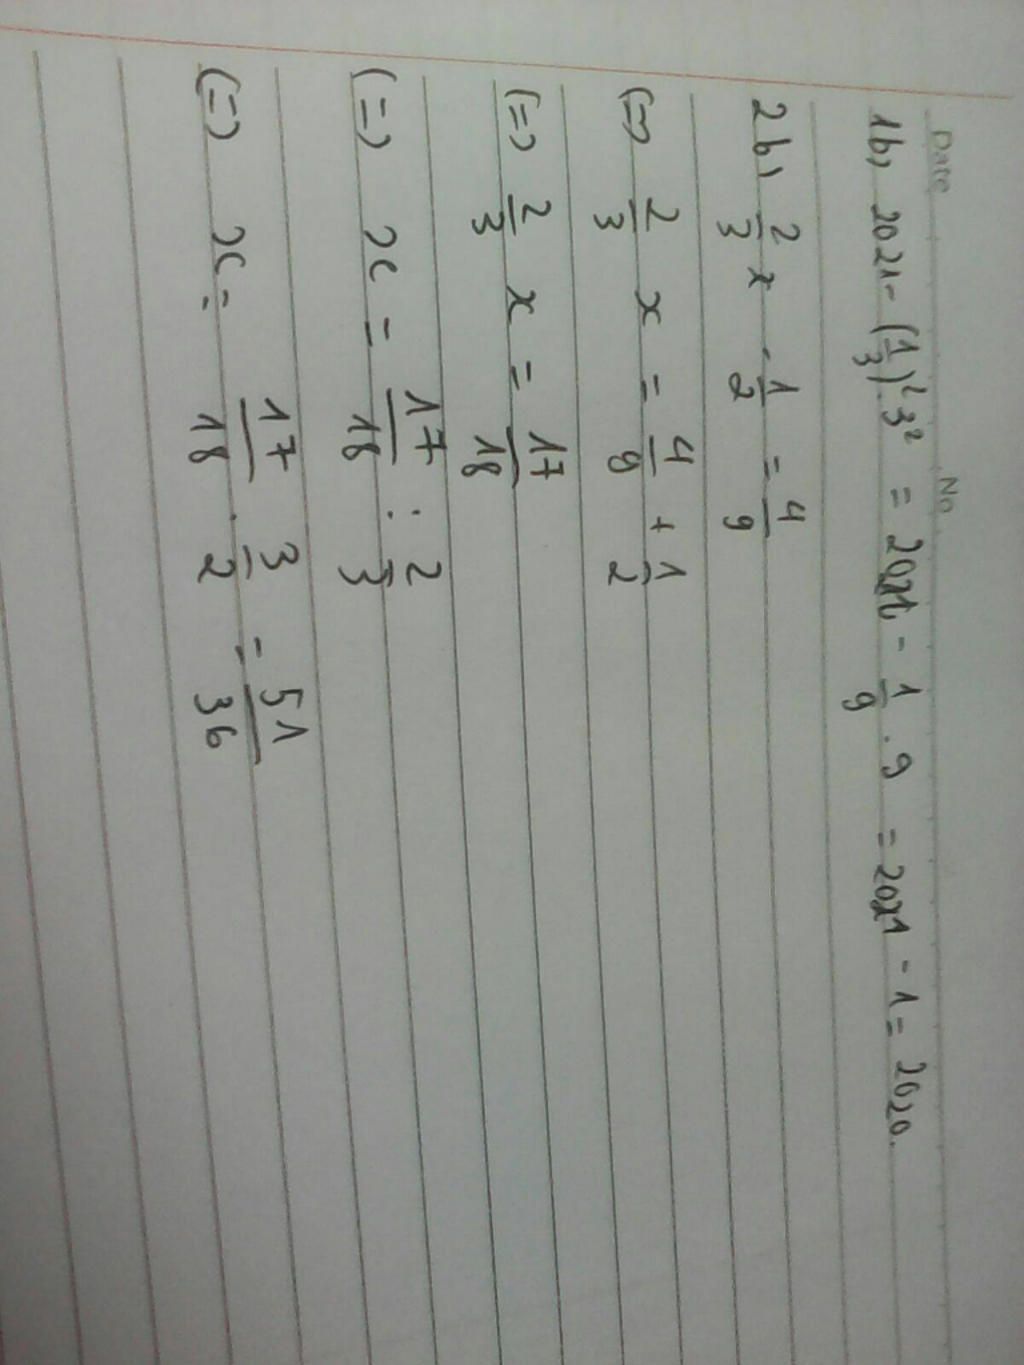 Date No
1b, 2021 - (1/3)² . 3² = 2021 - 1/9 . 9 = 2021 - 1 = 2020.
2b, 2/3 x - 1/2 = 4/9
(=) 2/3 x = 4/9 + 1/2
(=) 2/3 x = 17/18
(=) x = 17/18 : 2/3
(=) x = 17/18 . 3/2 = 51/36